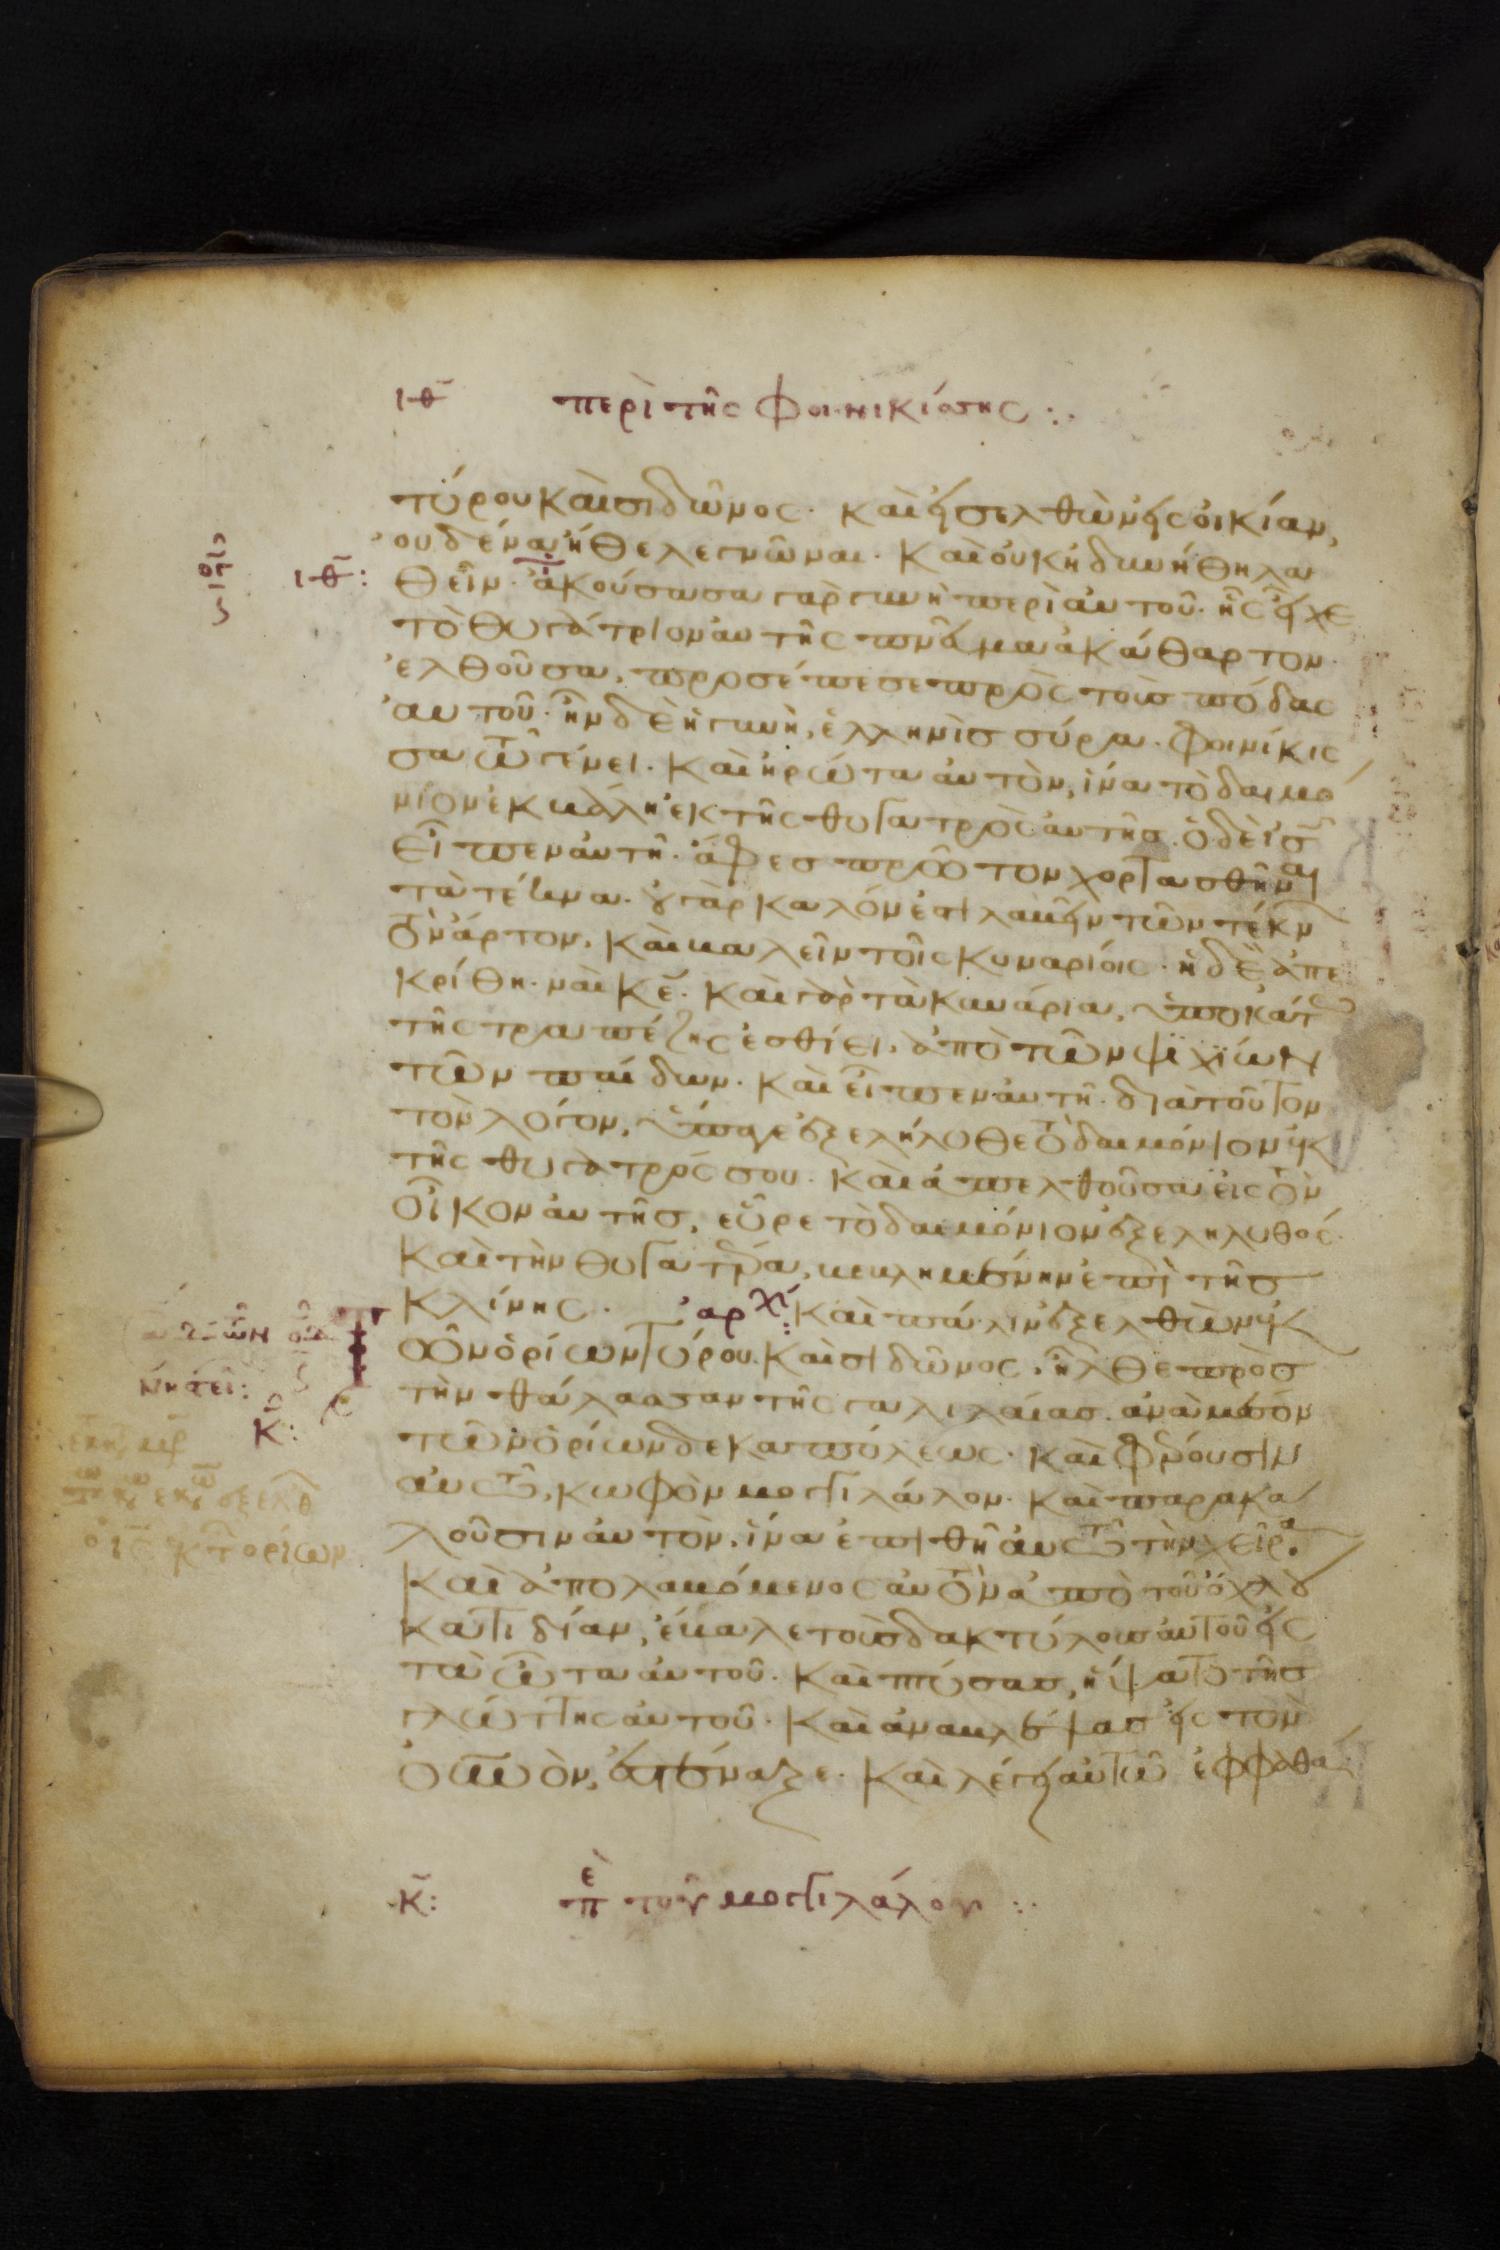 ιθ περὶ τῆς Φοινικίσσης :·
τύρου καὶ σιδῶνος· καὶ εἰσελθὼν εἰς οἰκίαν,
οὐδένα ἤθελε γνῶναι· καὶ οὐκ ἠδυνήθη λα
θεῖν· ἀκούσασα γὰρ γυνὴ περὶ αὐτοῦ· ἧς εἶχε
ιθ:
τὸ θυγάτριον αὐτῆς πνᾶ ἀκάθαρτον·
ἐλθοῦσα, προσέπεσε πρὸς τοὺς πόδας
αὐτοῦ· ἦν δὲ ἡ γυνὴ, ἑλληνὶς σύρα· φοινίκισ
σα τῶ γένει· καὶ ἠρώτα αὐτὸν, ἵνα τὸ δαιμό
νιον ἐκβάλη ἐκ τῆς θυγατρὸς αὐτῆς. ὁ δὲ ις̄
εἶπεν αὐτῆ· ἄφες πρῶτον χορτασθῆναι
τὰ τέκνα· οὐ γὰρ καλόν ἐστι λαβεῖν τῶν τέκν
τὸν ἄρτον, καὶ βαλεῖν τοῖς κυναρίοις· ἡ δὲ ἀπε
κρίθη· ναὶ κε̄· καὶ γὰρ τὰ κυνάρια, ὑποκάτω
τῆς τραπέζης ἐσθίει, ἀπὸ τῶν ψιχίων
τῶν παίδων· καὶ εἶπεν αὐτῆ· διὰ τοῦτον
τὸν λόγον, ὕπαγε ἐξελήλυθε τὸ δαιμόνιον ἐκ
τῆς θυγατρός σου· καὶ ἀπελθοῦσα εἰς τὸν
οἶκον αὐτῆς, εὗρε τὸ δαιμόνιον ἐξεληλυθός·
καὶ τὴν θυγατέρα, βεβλημένην ἐπὶ τῆς
κλίνης· ἀρχὶ: καὶ πάλιν ἐξελθὼν ἐκ
τῶν ὁρίων τύρου καὶ σιδῶνος, ἦλθε πρὸς
τὴν θάλασσαν τῆς γαλιλαίας. ἀνὰ μέσον
κ̄:
τῶν ὁρίων δεκαπόλεως· καὶ φέρουσιν
αὐτῶ, κωφὸν μογιλάλον· καὶ παρακα
λοῦσιν αὐτὸν, ἵνα ἐπιθῆ αὐτῶ τὴν χεῖρα·
καὶ ἀπολαβόμενος αὐτὸν ἀπὸ τοῦ ὄχλου
κατιδίαν, ἔβαλε τοὺς δακτύλους αὐτοῦ εἰς
τὰ ὦτα αὐτοῦ· καὶ πτύσας, ἥψατο τῆς
γλώττης αὐτοῦ· καὶ ἀναβλέψας εἰς τὸν
οὐνον, ἐστέναξε· καὶ λέγει αὐτῶ ἐφφαθα
κ̄: πὲ τοῦ μογιλάλου :·